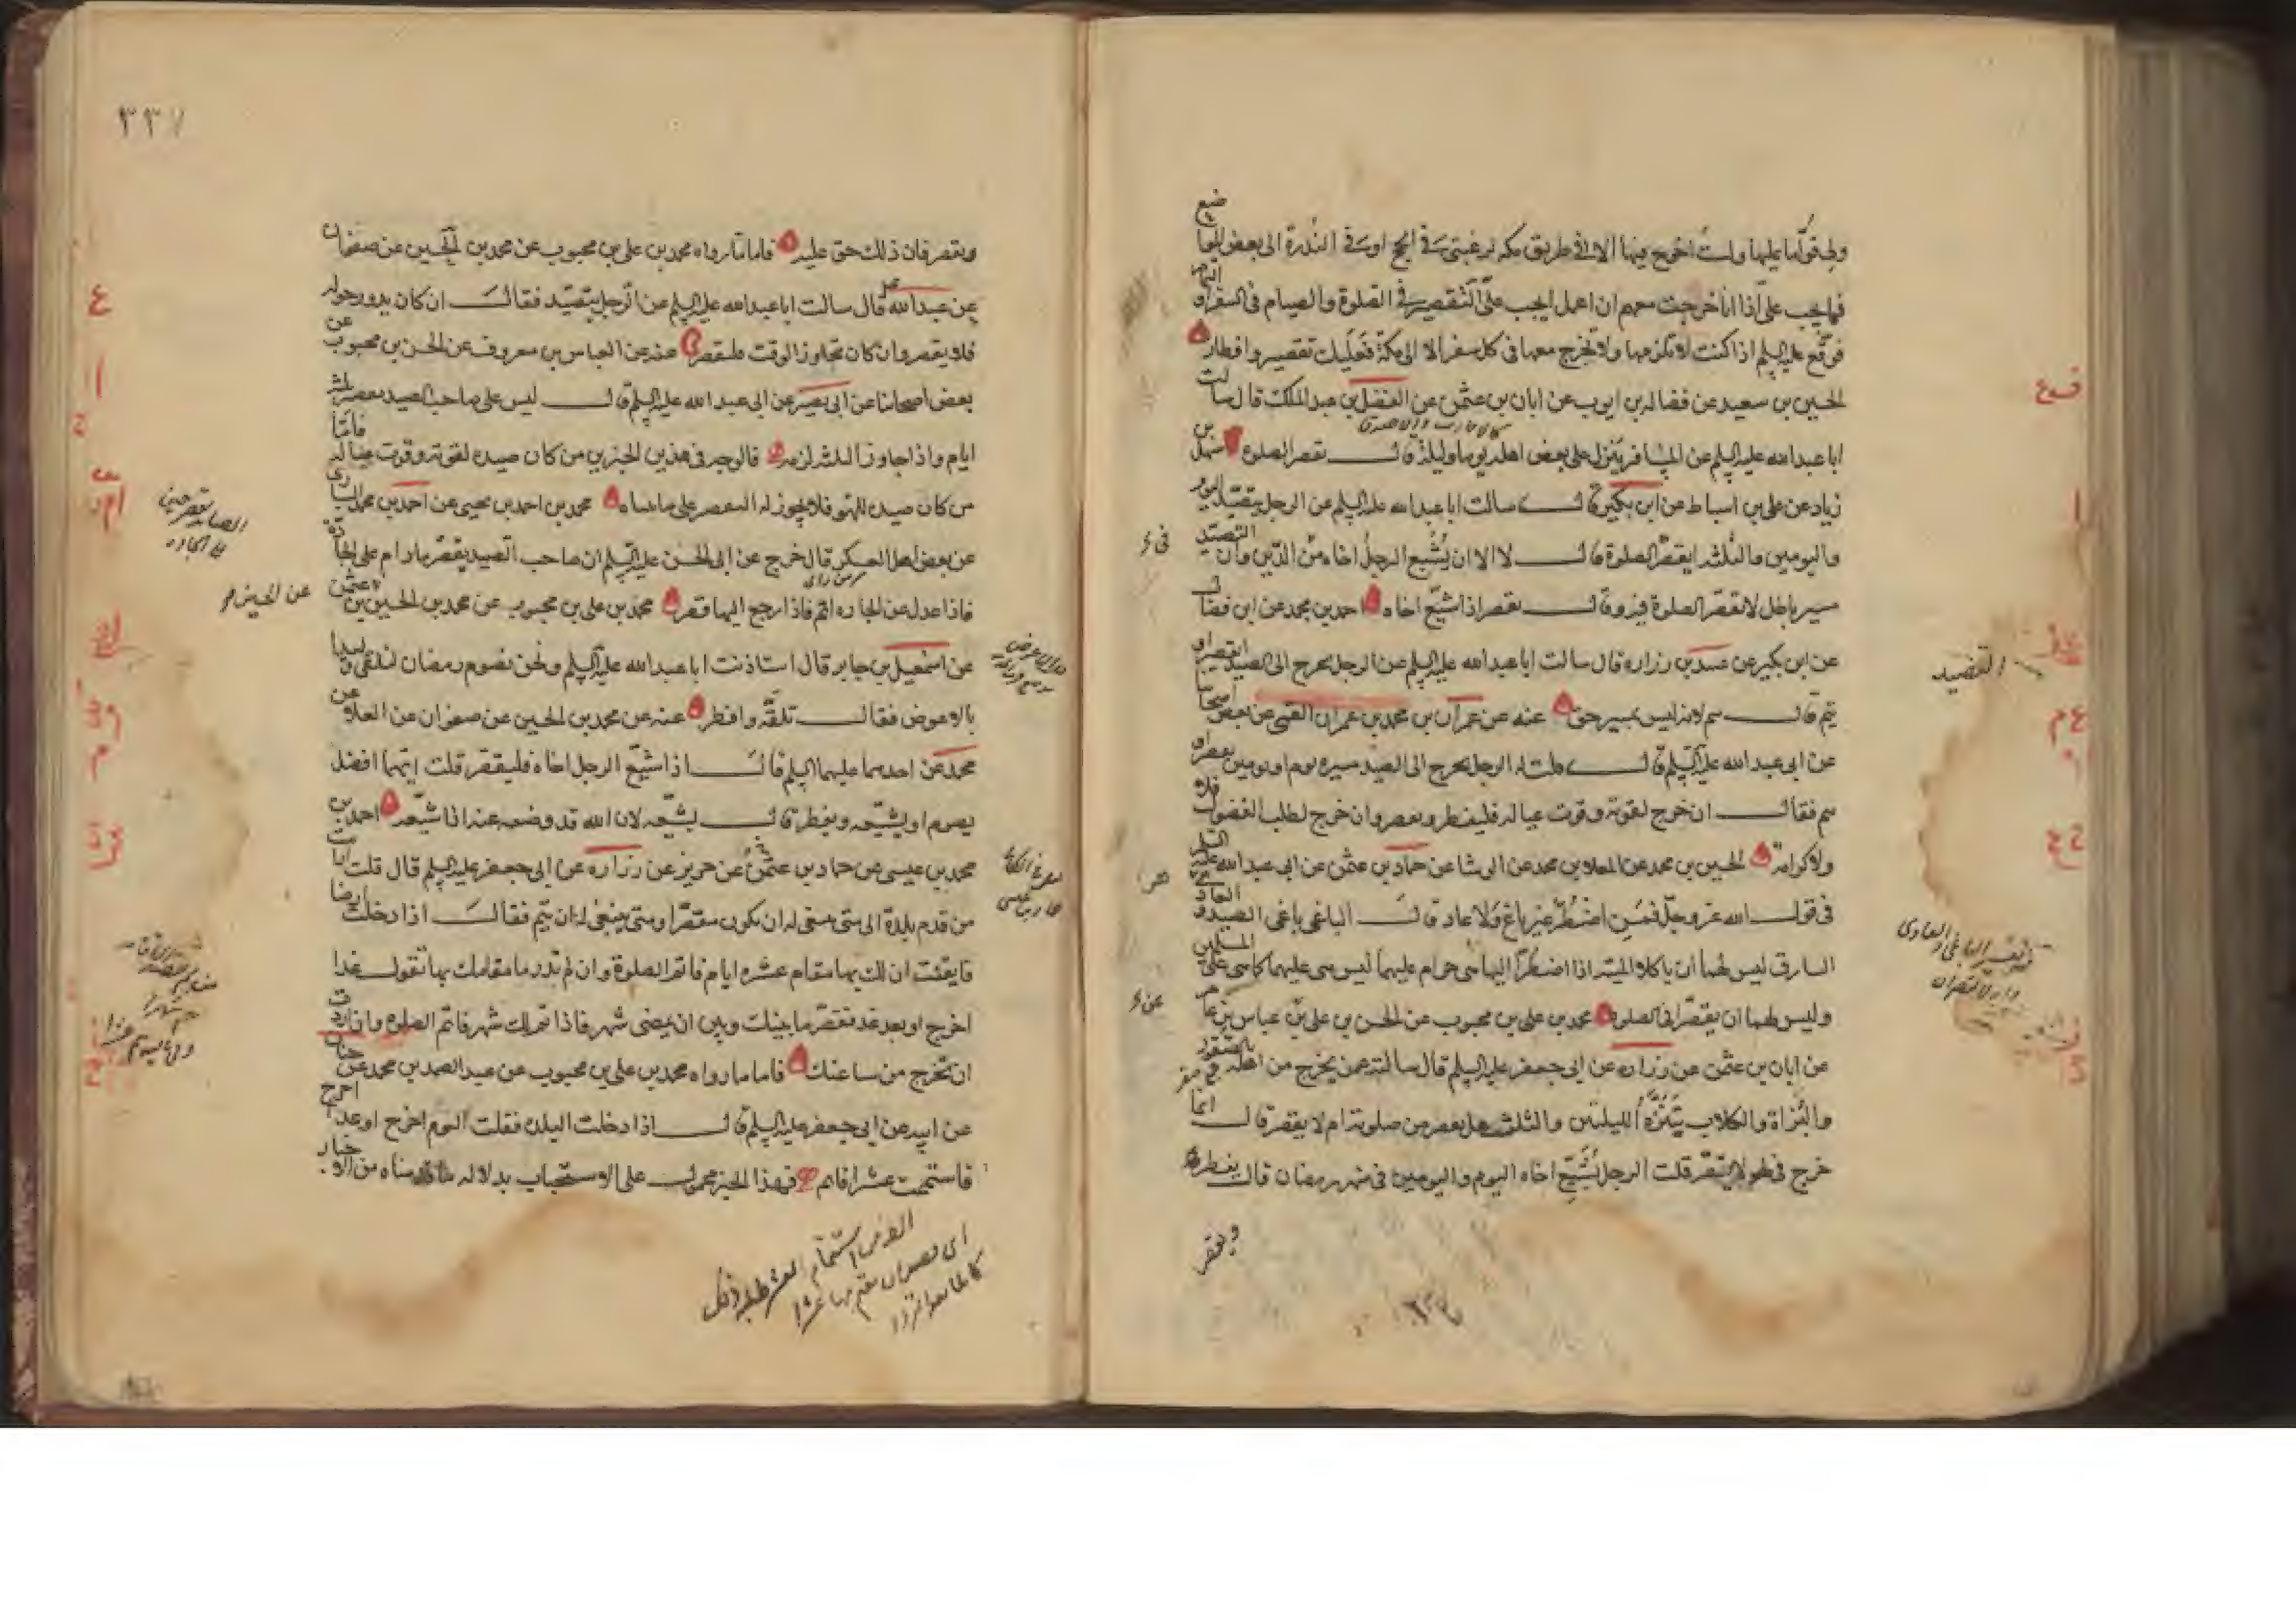 ولى قوّاما عليها ولست اخرج فيها الا فى طريق مكه لرغبتى فى الحج او فى الندرة الى بعض المواضع
فما يجب علىّ اذا انا خرجت معهم ان اعمل ايجب علىّ التقصير فى الصلوة والصيام فى السفر او التمام
فوقّع عليه السلم اذا كنت لا تلزمها ولا تخرج معها فى كل سفر الا الى مكة فعليك تقصير وافطار
الحسين بن سعيد عن فضاله بن ايوب عن ابان بن عثمن عن الفضل بن عبد الملك قال سالت
ابا عبد الله عليه السلم عن المسافر ينزل على بعض اهله يوما وليلة قال يقصر الصلوة سهل بن
زياد عن على بن اسباط عن ابن بكير قال سالت ابا عبد الله عليه السلم عن الرجل يتصيّد اليوم
واليومين والثلثه ايقصّر الصلوة قال لا الا ان يُشيّع الرجل اخاه من الدّين وان التصيّد
مسير باطل لا تقصّر الصلوة فيه وقال يقصر اذا شيّع اخاه احمد بن محمد عن ابن فضال
عن ابن بكير عن عبيد بن زراره قال سالت ابا عبد الله عليه السلم عن الرجل يخرج الى الصيد ايقصر او
يتم قال يتم لانه ليس بمسير حق عنه عن عمران بن محمد بن عمران القمى عن بعض اصحابنا
عن ابى عبد الله عليه السلم قال قلت له الرجل يخرج الى الصيد مسيره يوم او يومين يقصر او
يتم فقال ان خرج لقوته وقوت عياله فليفطر ويقصر وان خرج لطلب الفضول فلا
ولا كرامة الحسين بن محمد عن المعلا بن محمد عن الوشا عن حماد بن عثمن عن ابى عبد الله عليه السلم
فى قول الله عز وجلّ فمن اضطرّ غير باغ ولا عاد قال الباغى باغى الصيد والعاد
السارق ليس لهما ان ياكلا الميتة اذا اضطرّا اليها هى حرام عليهما ليس هى عليهما كما هى على المسلمين
وليس لهما ان يقصّرا فى الصلوة محمد بن على بن محبوب عن الحسن بن على بن عباس بن عامر
عن ابان بن عثمن عن زراره عن ابى جعفر عليه السلم قال سالته عمن يخرج من اهله بالصقور
والبُزاة والكلاب يتنزّه الليلتين والثلثه هل يقصر من صلوته ام لا يقصر قال انما
خرج فى لهو لا يقصّر قلت الرجل يُشيّع اخاه اليوم واليومين فى شهر رمضان قال يفطر
ويقصر
التصيد
٣٣٧
ويقصر فان ذلك حق عليه فاما ما رواه محمد بن على بن محبوب عن محمد بن الحسين عن صفوان
عن عبد الله قال سالت ابا عبد الله عليه السلم عن الرجل يتصيّد فقال ان كان يدور حوله
فلا يقصر وان كان تجاوز الوقت فليقصر عنه عن العباس بن معروف عن الحسن بن محبوب عن
بعض اصحابنا عن ابى بصير عن ابى عبد الله عليه السلم قال ليس على صاحب الصيد تقصير ثلثه
ايام واذا جاوز الثلثه لزمه فالوجه فى هذين الخبرين من كان صيده لقوته وقوت عياله فامّا
من كان صيده للهو فلا يجوز له التقصير على ما بيناه محمد بن احمد بن يحيى عن احمد بن محمد السيارى
عن بعض اهل العسكر قال خرج عن ابى الحسن عليه السلم ان صاحب الصيد يقصّر ما دام على الجادّة
فاذا عدل عن الجاده اتم فاذا رجع اليها قصر محمد بن على بن محبوب عن محمد بن الحسين بن عثمن
عن اسمعيل بن جابر قال استاذنت ابا عبد الله عليه السلم ونحن نصوم رمضان لنلقى وليدا
بالاعوض فقال تلقّه وافطر عنه عن محمد بن الحسين عن صفوان عن العلا عن
محمد عن احدهما عليهما السلم قال اذا شيّع الرجل اخاه فليقصّر قلت ايّهما افضل
يصوم او يشيّعه ويفطر قال يشيّعه لان الله قد وضعه عنه اذا شيّعه احمد بن
محمد بن عيسى عن حماد بن عثمن عن حريز عن زراره عن ابى جعفر عليه السلم قال قلت ارايت
من قدم بلدة الى متى ينبغى له ان يكون مقصّرا ومتى ينبغى له ان يتم فقال اذا دخلت ارضا
فايقنت ان لك بها مقام عشرة ايام فاتم الصلوة وان لم تدر ما مقامك بها تقول غدا
اخرج او بعد غد فقصّر ما بينك وبين ان يمضى شهر فاذا تم لك شهر فاتم الصلوة وان اردت
ان تخرج من ساعتك فاما ما رواه محمد بن على بن محبوب عن عبد الصمد بن محمد عن حنان
عن ابيه عن ابى جعفر عليه السلم قال اذا دخلت البلده فقلت اليوم اخرج او غدا اخرج
فاستتممت عشرا فاتم فهذا الخبر محمول على الاستحباب بدلاله ما قدمناه من الاخبار